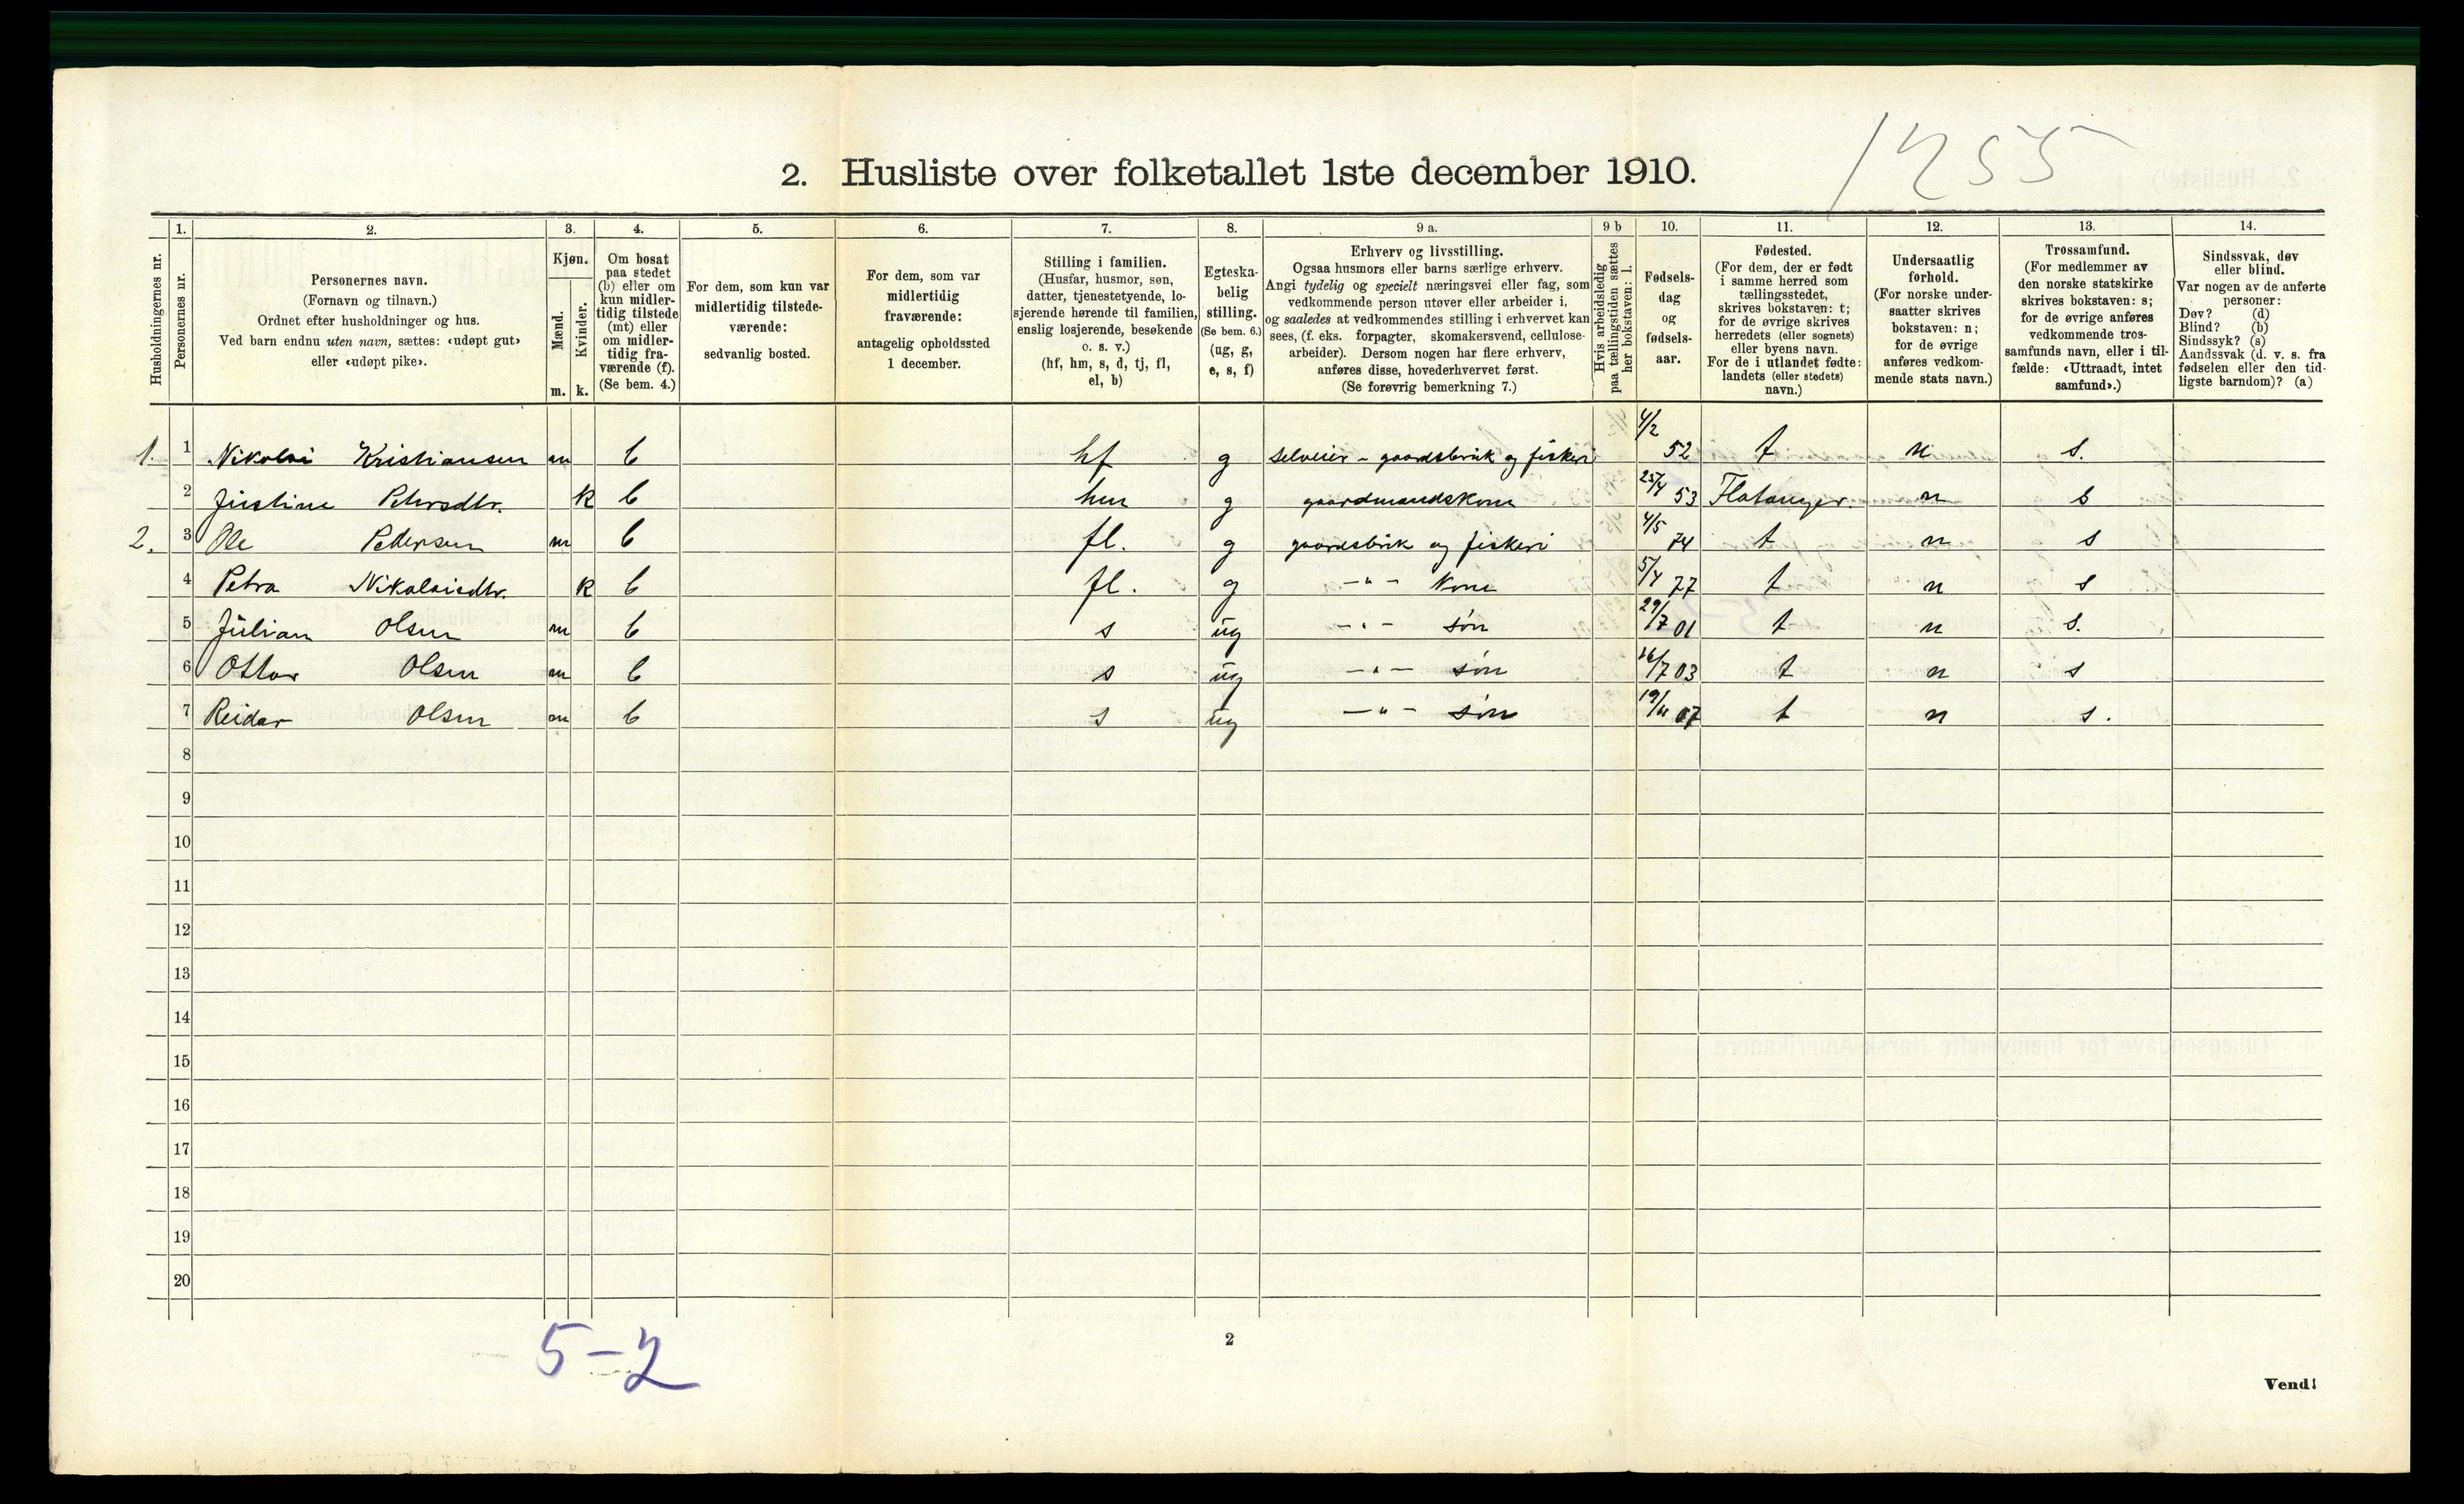 1255
2. Husliste over folketallet 1ste december 1910.
Husholdningernes nr.
1.
Personernes nr.
2.
Personernes navn.
(Fornavn og tilnavn.)
Ordnet efter husholdninger og hus.
Ved barn endnu uten navn, sættes: «udøpt gut»
eller «udøpt pike».
3.
Kjøn.
Mænd.
Kvinder.
m. k.
4.
Om bosat
paa stedet
(b) eller om
kun midler-
tidig tilstede
(mt) eller
om midler-
tidig fra-
værende (f).
(Se bem. 4.)
5.
For dem, som kun var
midlertidig tilstede-
værende:
sedvanlig bosted.
6.
For dem, som var
midlertidig
fraværende:
antagelig opholdssted
1 december.
7.
Stilling i familien.
(Husfar, husmor, søn,
datter, tjenestetyende, lo-
sjerende hørende til familien,
enslig losjerende, besøkende
o. s. v.)
(hf, hm, s, d, tj, fl,
el, b)
8.
Egteska-
belig
stilling.
(Se bem. 6.)
(ug, g,
e, s, f)
9 a.
Erhverv og livsstilling.
Ogsaa husmors eller barns særlige erhverv.
Angi tydelig og specielt næringsvei eller fag, som
vedkommende person utøver eller arbeider i,
og saaledes at vedkommendes stilling i erhvervet kan
sees, (f. eks. forpagter, skomakersvend, cellulose-
arbeider). Dersom nogen har flere erhverv,
anføres disse, hovederhvervet først.
(Se forøvrig bemerkning 7.)
9 b
Hvis arbeidsledig
paa tællingstiden sættes
her bokstaven: l.
10.
Fødsels-
dag
og
fødsels-
aar.
11.
Fødested.
(For dem, der er født
i samme herred som
tællingsstedet,
skrives bokstaven: t;
for de øvrige skrives
herredets (eller sognets)
eller byens navn.
For de i utlandet fødte:
landets (eller stedets)
navn.)
12.
Undersaatlig
forhold.
(For norske under-
saatter skrives
bokstaven: n;
for de øvrige
anføres vedkom-
mende stats navn.)
13.
Trossamfund.
(For medlemmer av
den norske statskirke
skrives bokstaven: s;
for de øvrige anføres
vedkommende tros-
samfunds navn, eller i til-
fælde: «Uttraadt, intet
samfund».)
14.
Sindssvak, døv
eller blind.
Var nogen av de anførte
personer:
Døv? (d)
Blind? (b)
Sindssyk? (s)
Aandssvak (d. v. s. fra
fødselen eller den tid-
ligste barndom)? (a)
1. 1 Nikolai Kristiansen m b hf g selveier - gaardsbruk og fiskeri 4/2 52 t n s.
2 Justine Petersdtr. k b hm g gaardmandskone 25/4 53 Flatanger. n s
2. 3 Ole Pedersen m b fl. g gaardsbruk og fiskeri 4/5 74 t n s
4 Petra Nikolaisdtr. k b fl. g -"- kone 5/4 77 t n s
5 Julian Olsen m b s ug -"- søn 29/7 01 t n s.
6 Ottar Olsen m b s ug -"- søn 16/7 03 t n s
7 Reidar Olsen m b s ug -"- søn 19/11 07 t n s.
8
9
10
11
12
13
14
15
16
17
18
19
20
5-2
2
Vend!